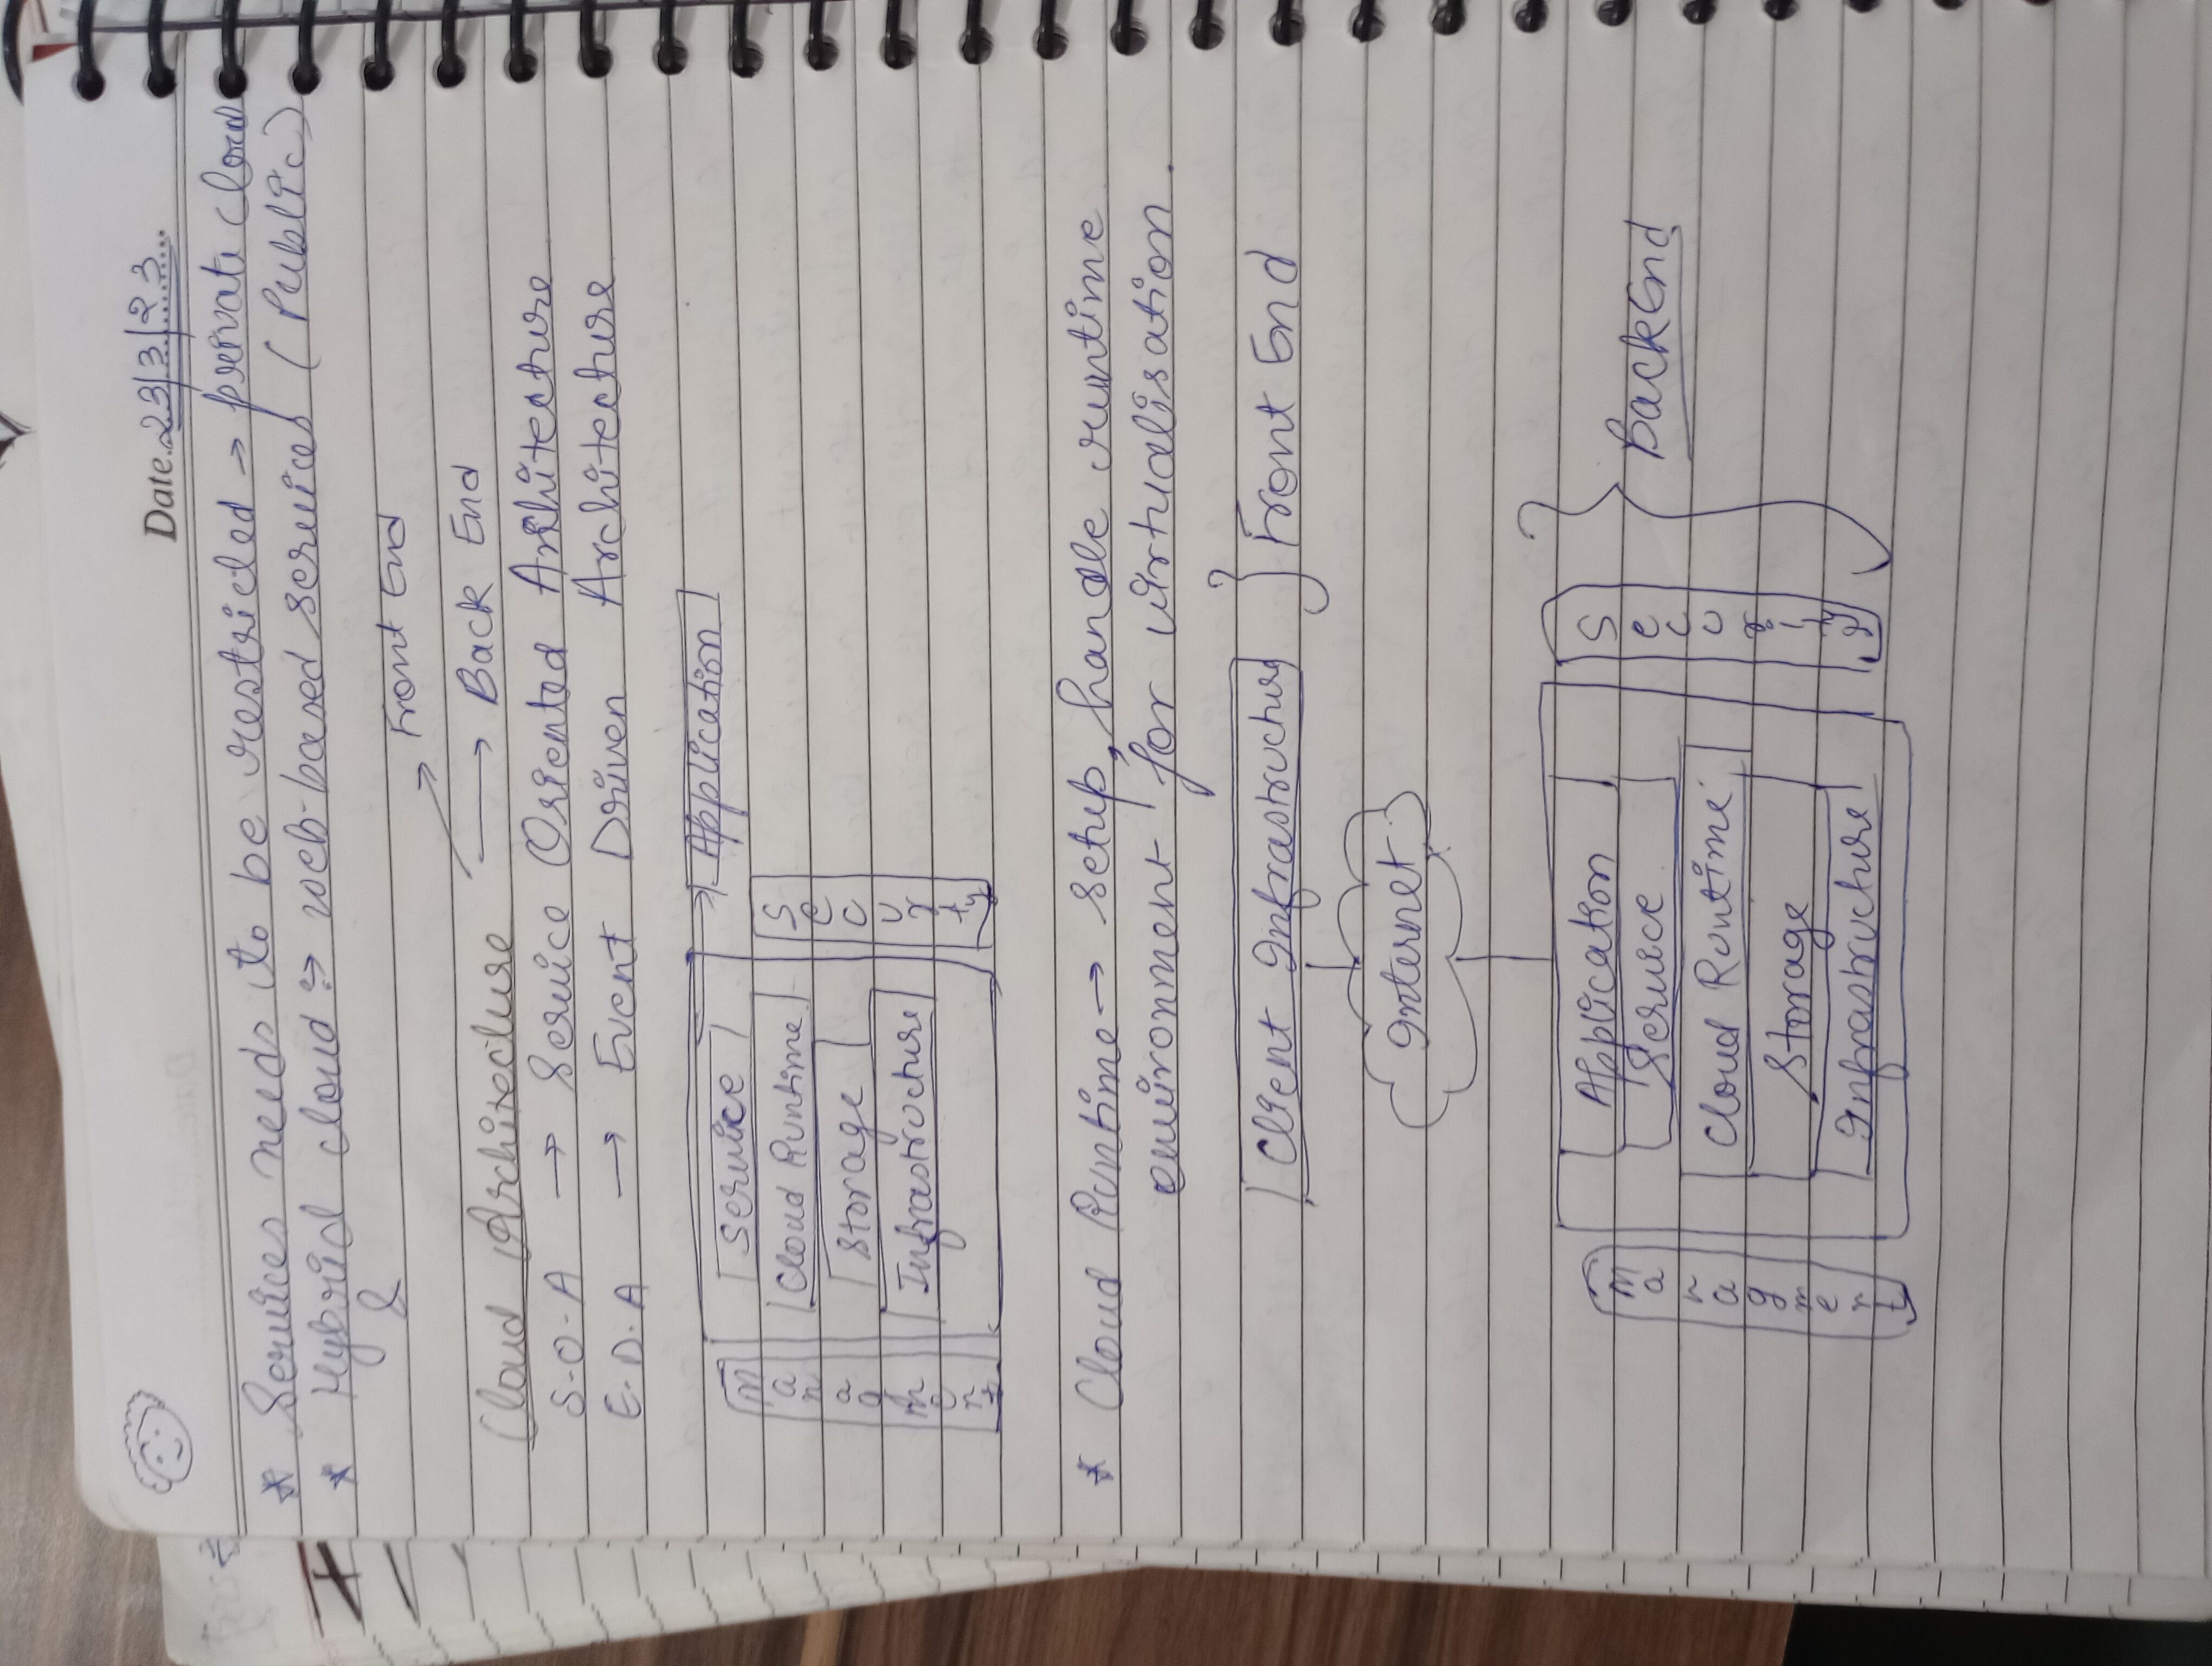 Date 23/3/23
* Services needs to be restricled → private cloud
* Hybrid cloud → web-based services (Public)
&
→ Front End
Cloud Architecture → Back End
S.O.A → Service Oriented Arhitecture
E.D.A → Event Driven Architecture
→ Application
Service
Cloud Runtime
Storage
Infrastructure
Managment
Security
* Cloud Runtime → setup, handle runtime
environment for virtualisation.
Client Infrastructure } Front End
Internet
Application
Service
Cloud Runtime
Storage
Infrastructure
Managment
Security
BackEnd